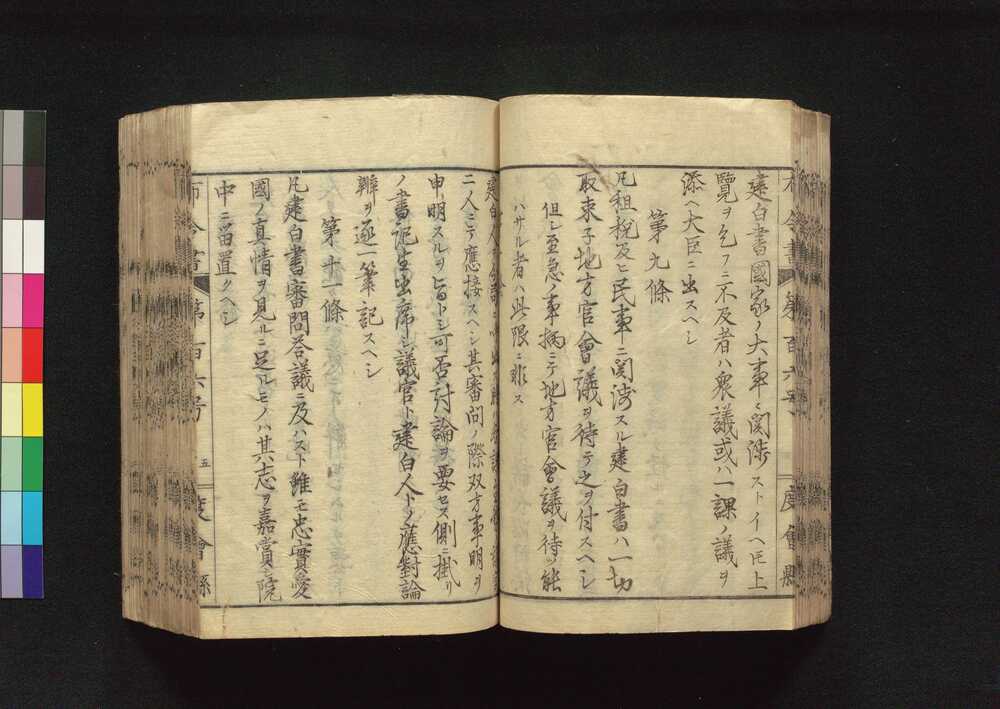 布令書 第百六号 度會縣
建白書國家ノ大事ニ関渉ストイヘ𪜈上
覽ヲ乞フニ不及者ハ衆議或ハ一課ノ議ヲ
添ヘ大臣ニ出スヘシ
第九條
凡租税及ヒ民事ニ関渉スル建白書ハ一切
取束子地方官會議ヲ待テ之ヲ付スヘシ
但シ至急ノ事柄ニテ地方官會議ヲ待ツ能
ハサル者ハ此限ニ非ス
建白人
二人ニテ應接スヘシ其審問ノ際双方事明ヲ
申明スルヲ旨トシ可否討論ヲ要セス側ニ掛リ
ノ書記生出席シ議官ト建白人トノ應對論
辨ヲ逐一筆記スヘシ
第十一條
凡建白書審問答議ニ及ハスト雖モ忠實愛
國ノ真情ヲ見ルニ足ルモノハ其志ヲ嘉賞シ院
中ニ留置クヘシ
布令書 第百六号 五 度會縣